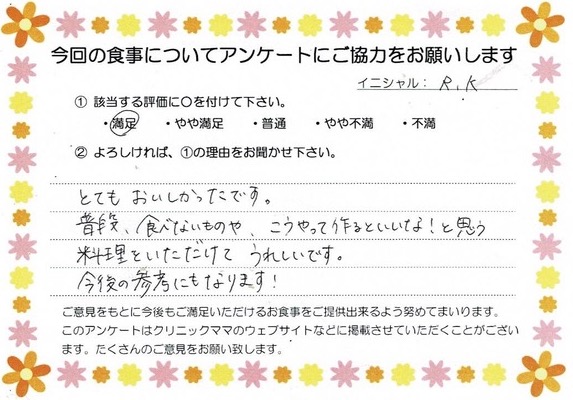 今回の食事についてアンケートにご協力をお願いします
イニシャル： R.K
① 該当する評価に○を付けて下さい。
・満足 ・やや満足 ・普通 ・やや不満 ・不満
② よろしければ、①の理由をお聞かせ下さい。
とても おいしかったです。
普段、食べないものや、こうやって作るといいな！と思う
料理をいただけて うれしいです。
今後の参考にもなります！
ご意見をもとに今後もご満足いただけるお食事をご提供出来るよう努めてまいります。
このアンケートはクリニックママのウェブサイトなどに掲載させていただくことがござい
ます。たくさんのご意見をお願い致します。